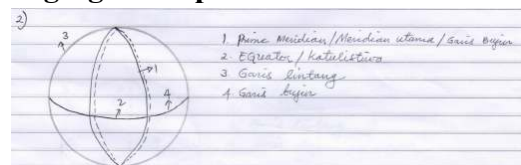 2)
3
1
2
4
1. Prime Meridian/Meridian utama/Garis Bujur
2. EQuator/katulistiwa
3 Garis lintang
4. Garis bujur